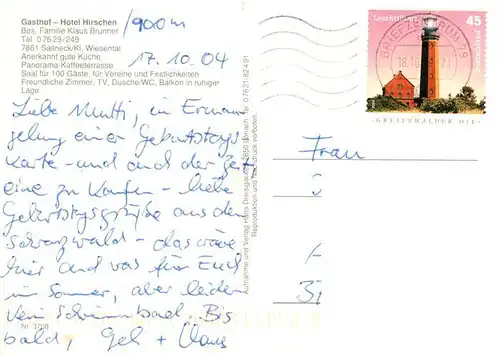 Gasthof – Hotel Hirschen
Bes. Familie Klaus Brunner
Tel 07629/249
7861 Sallneck/Kl. Wiesental
Anerkannt gute Küche
Panorama-Kaffeeterrasse
Saal für 100 Gäste, für Vereine und Festlichkeiten
Freundliche Zimmer, TV, Dusche/WC, Balkon in ruhiger
Lage
/900m
17.10.04
Liebe Mutti, in Erman
gelung einer Geburtstags
karte - und auch der Zeit
eine zu kaufen - liebe
Geburtstagsgrüße aus dem
Schwarzwald - das wäre
hier auch was für Euch
im Sommer, aber leider
kein Schwimmbad. Bis
bald, Gel + Klaus
Nr. 3708
Aufnahme und Verlag Hans
Reproduktion und Nachdruck verboten.
Leuchttürme
45
BRIEFZENTRUM 79
18.10
GREIFSWALDER OIE
Frau